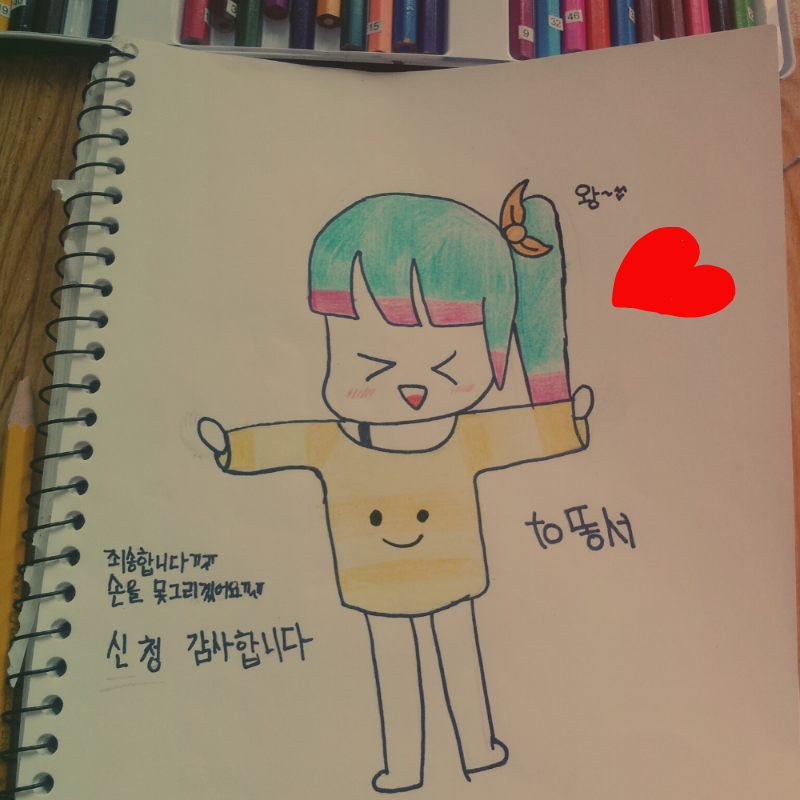 왕~^^
to 똥서
죄송합니다ㅠㅠ
손을 못그리겠어요ㅠㅠ
신청 감사합니다
15
9
32
46